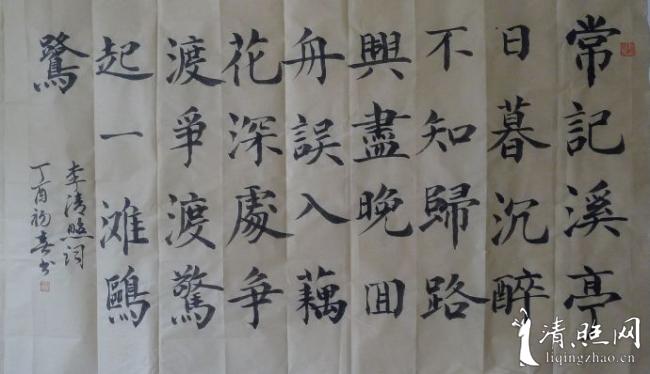 常記溪亭
日暮沉醉
不知歸路
興盡晚囬
舟誤入藕
花深處争
渡爭渡驚
起一滩鷗
鷺
李清照词
丁酉 书
清照网
liqingzhao.cn